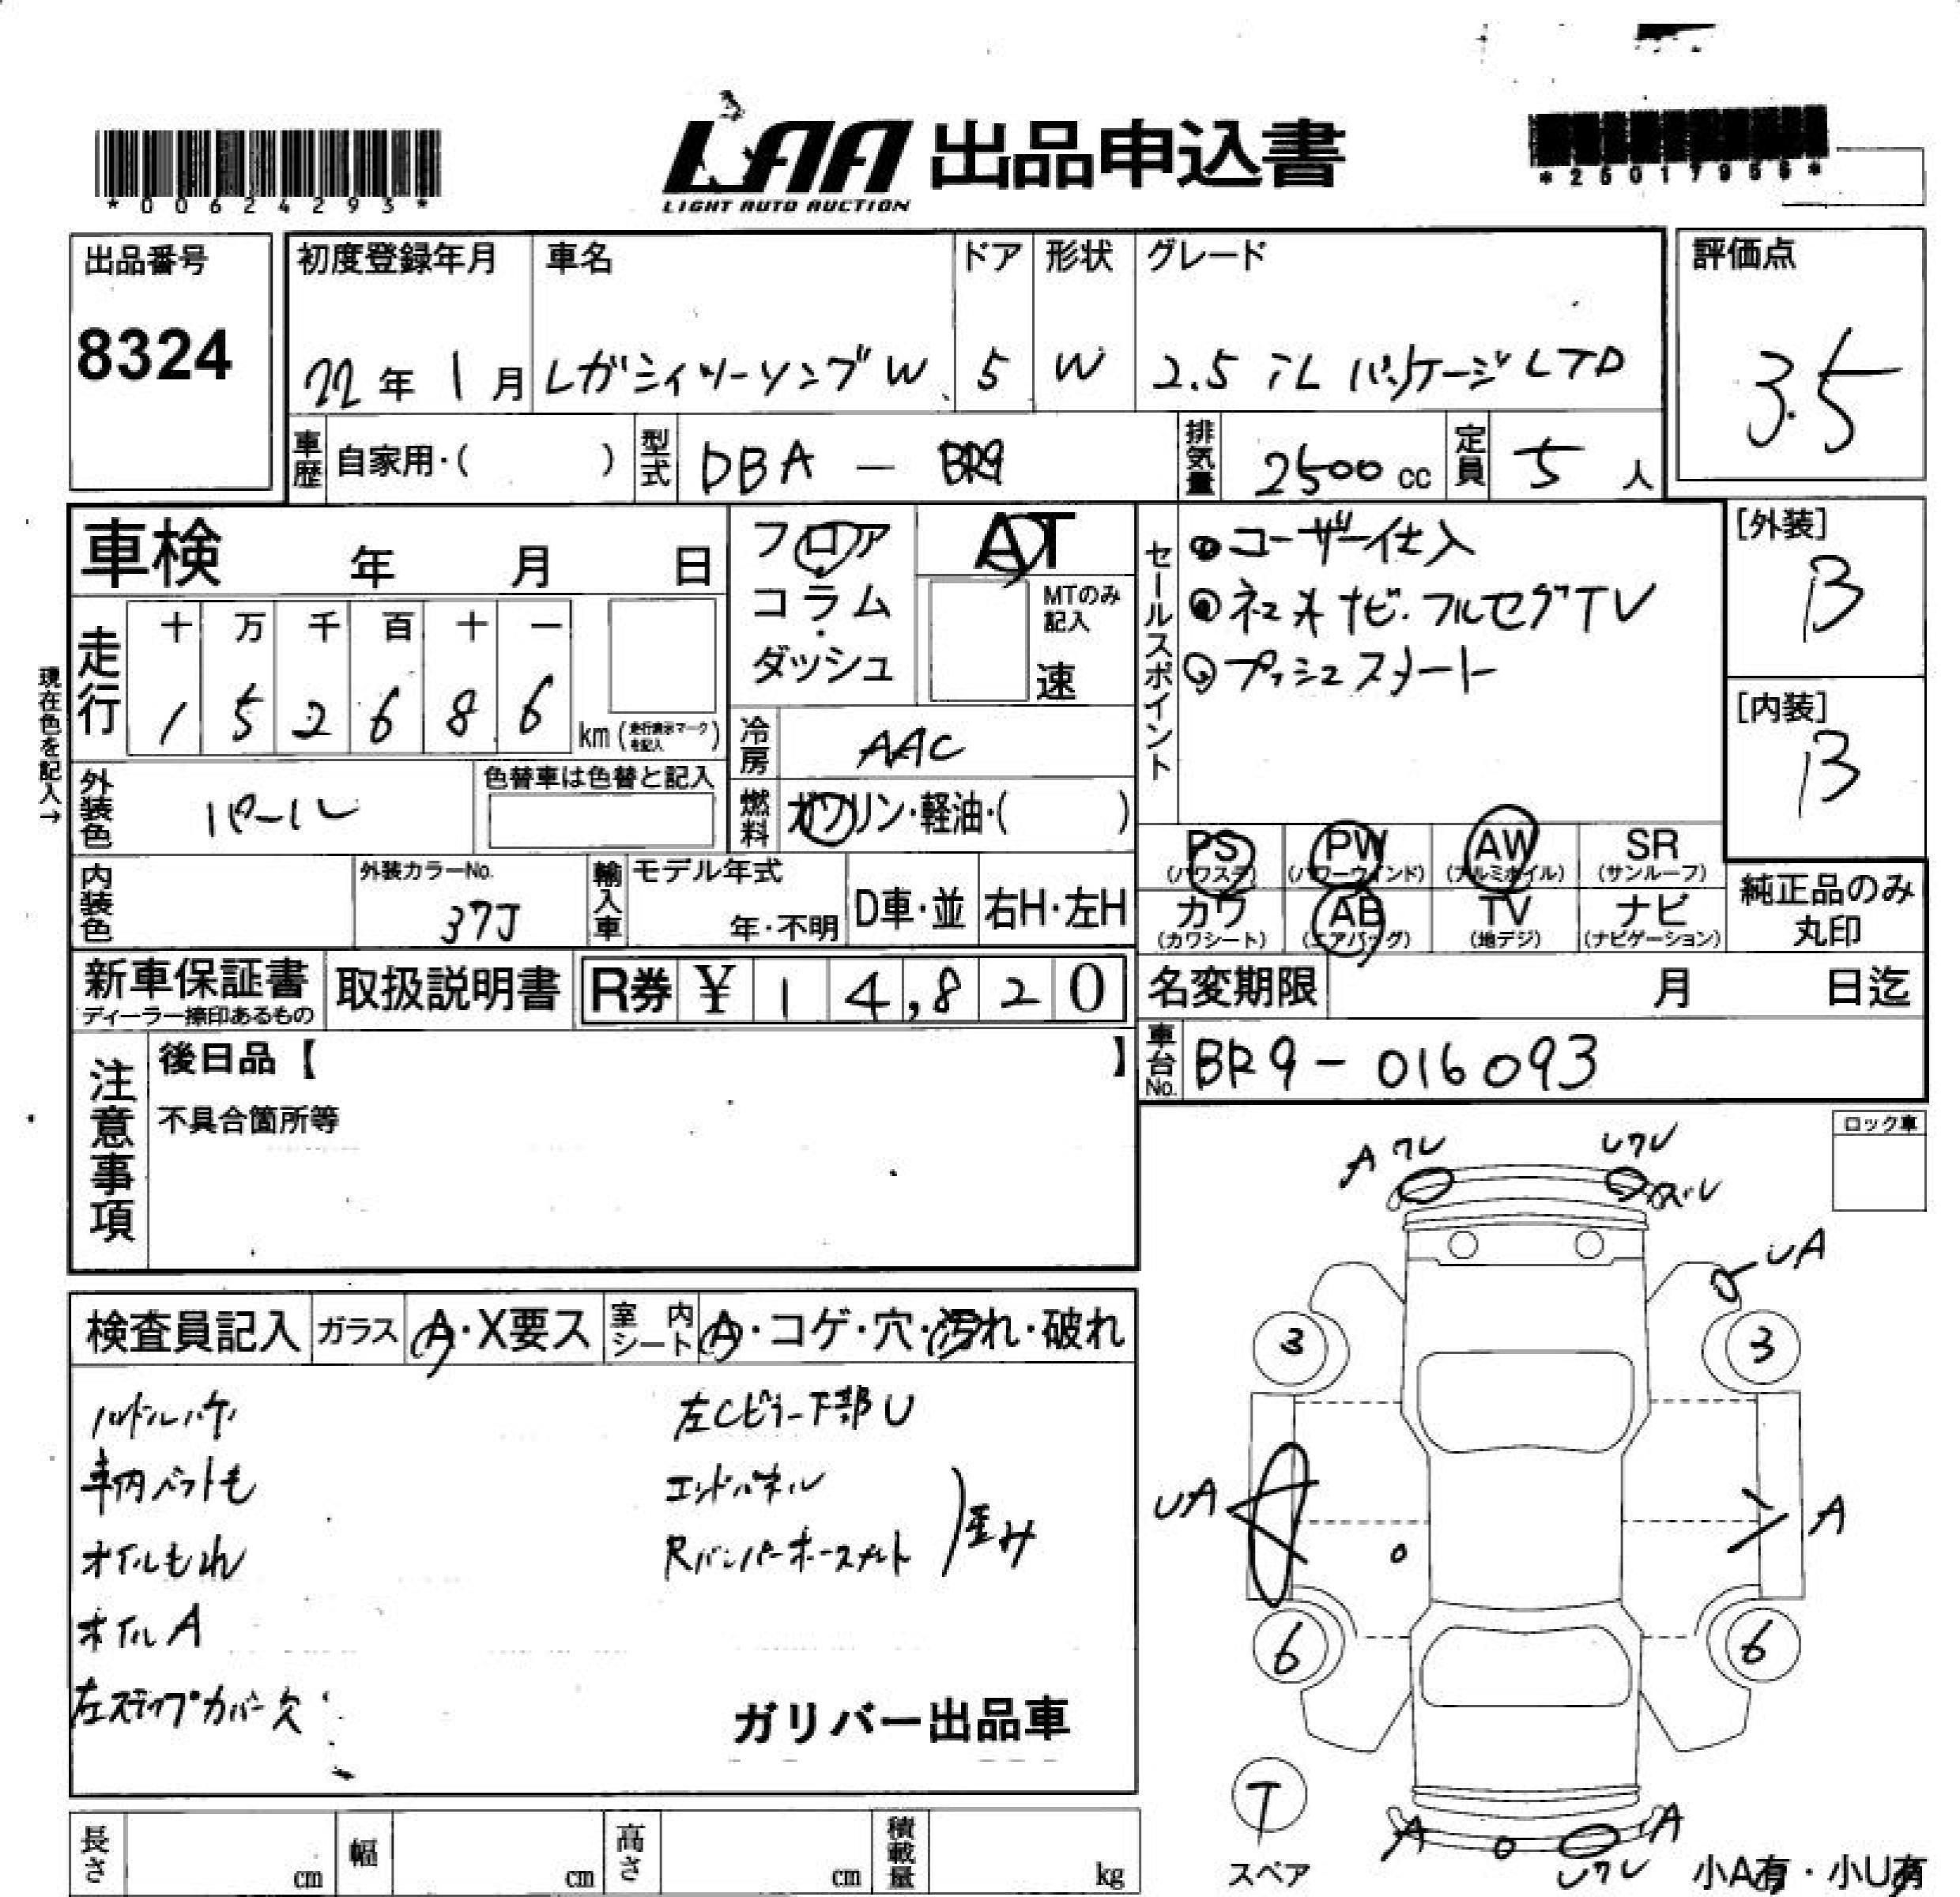 *00624293*
LAA 出品申込書
LIGHT AUTO AUCTION
出品番号
8324
初度登録年月
22年 1月
車名
レガシィツーリングW
ドア
5
形状
W
グレード
2.5 iL パッケージ LTD
評価点
3.5
車歴 自家用・( )
型式 DBA - BR9
排気量 2500 cc
定員 5 人
車検 年 月 日
フロア
コラム
・
ダッシュ
AT
MTのみ
記入
速
セールスポイント
ユーザー仕入
ナビ・フルセグTV
プッシュスタート
[外装]
B
[内装]
B
現在色を記入→
走行
十 万 千 百 十 一
1 5 2 6 8 6
km (走行表示マークを記入)
冷房 AAC
外装色 パール
色替車は色替と記入
燃料 ガソリン・軽油・( )
内装色
外装カラーNo.
37J
輸入車
モデル年式
年・不明
D車・並
右H・左H
PS
(パワステ)
PW
(パワーウインド)
AW
(アルミホイル)
SR
(サンルーフ)
カワ
(カワシート)
AB
(エアバッグ)
TV
(地デジ)
ナビ
(ナビゲーション)
純正品のみ
丸印
新車保証書
ディーラー捺印あるもの
取扱説明書
R券 ¥ 1 4,8 2 0
名変期限 月 日迄
車台No. BR9-016093
注意事項
後日品【 】
不具合箇所等
ロック車
検査員記入
ガラス A・X要ス
室内シート A・コゲ・穴・汚れ・破れ
ハンドルハゲ
オイルもれ
オイルA
左ステップカバー欠
左Cピラー下部U
エンドパネル
歪み
ガリバー出品車
A ワレ
ワレ
UA
3
3
UA
A
6
6
T
スペア
A
A
ワレ
小A有・小U有
長さ cm
幅 cm
高さ cm
積載量 kg